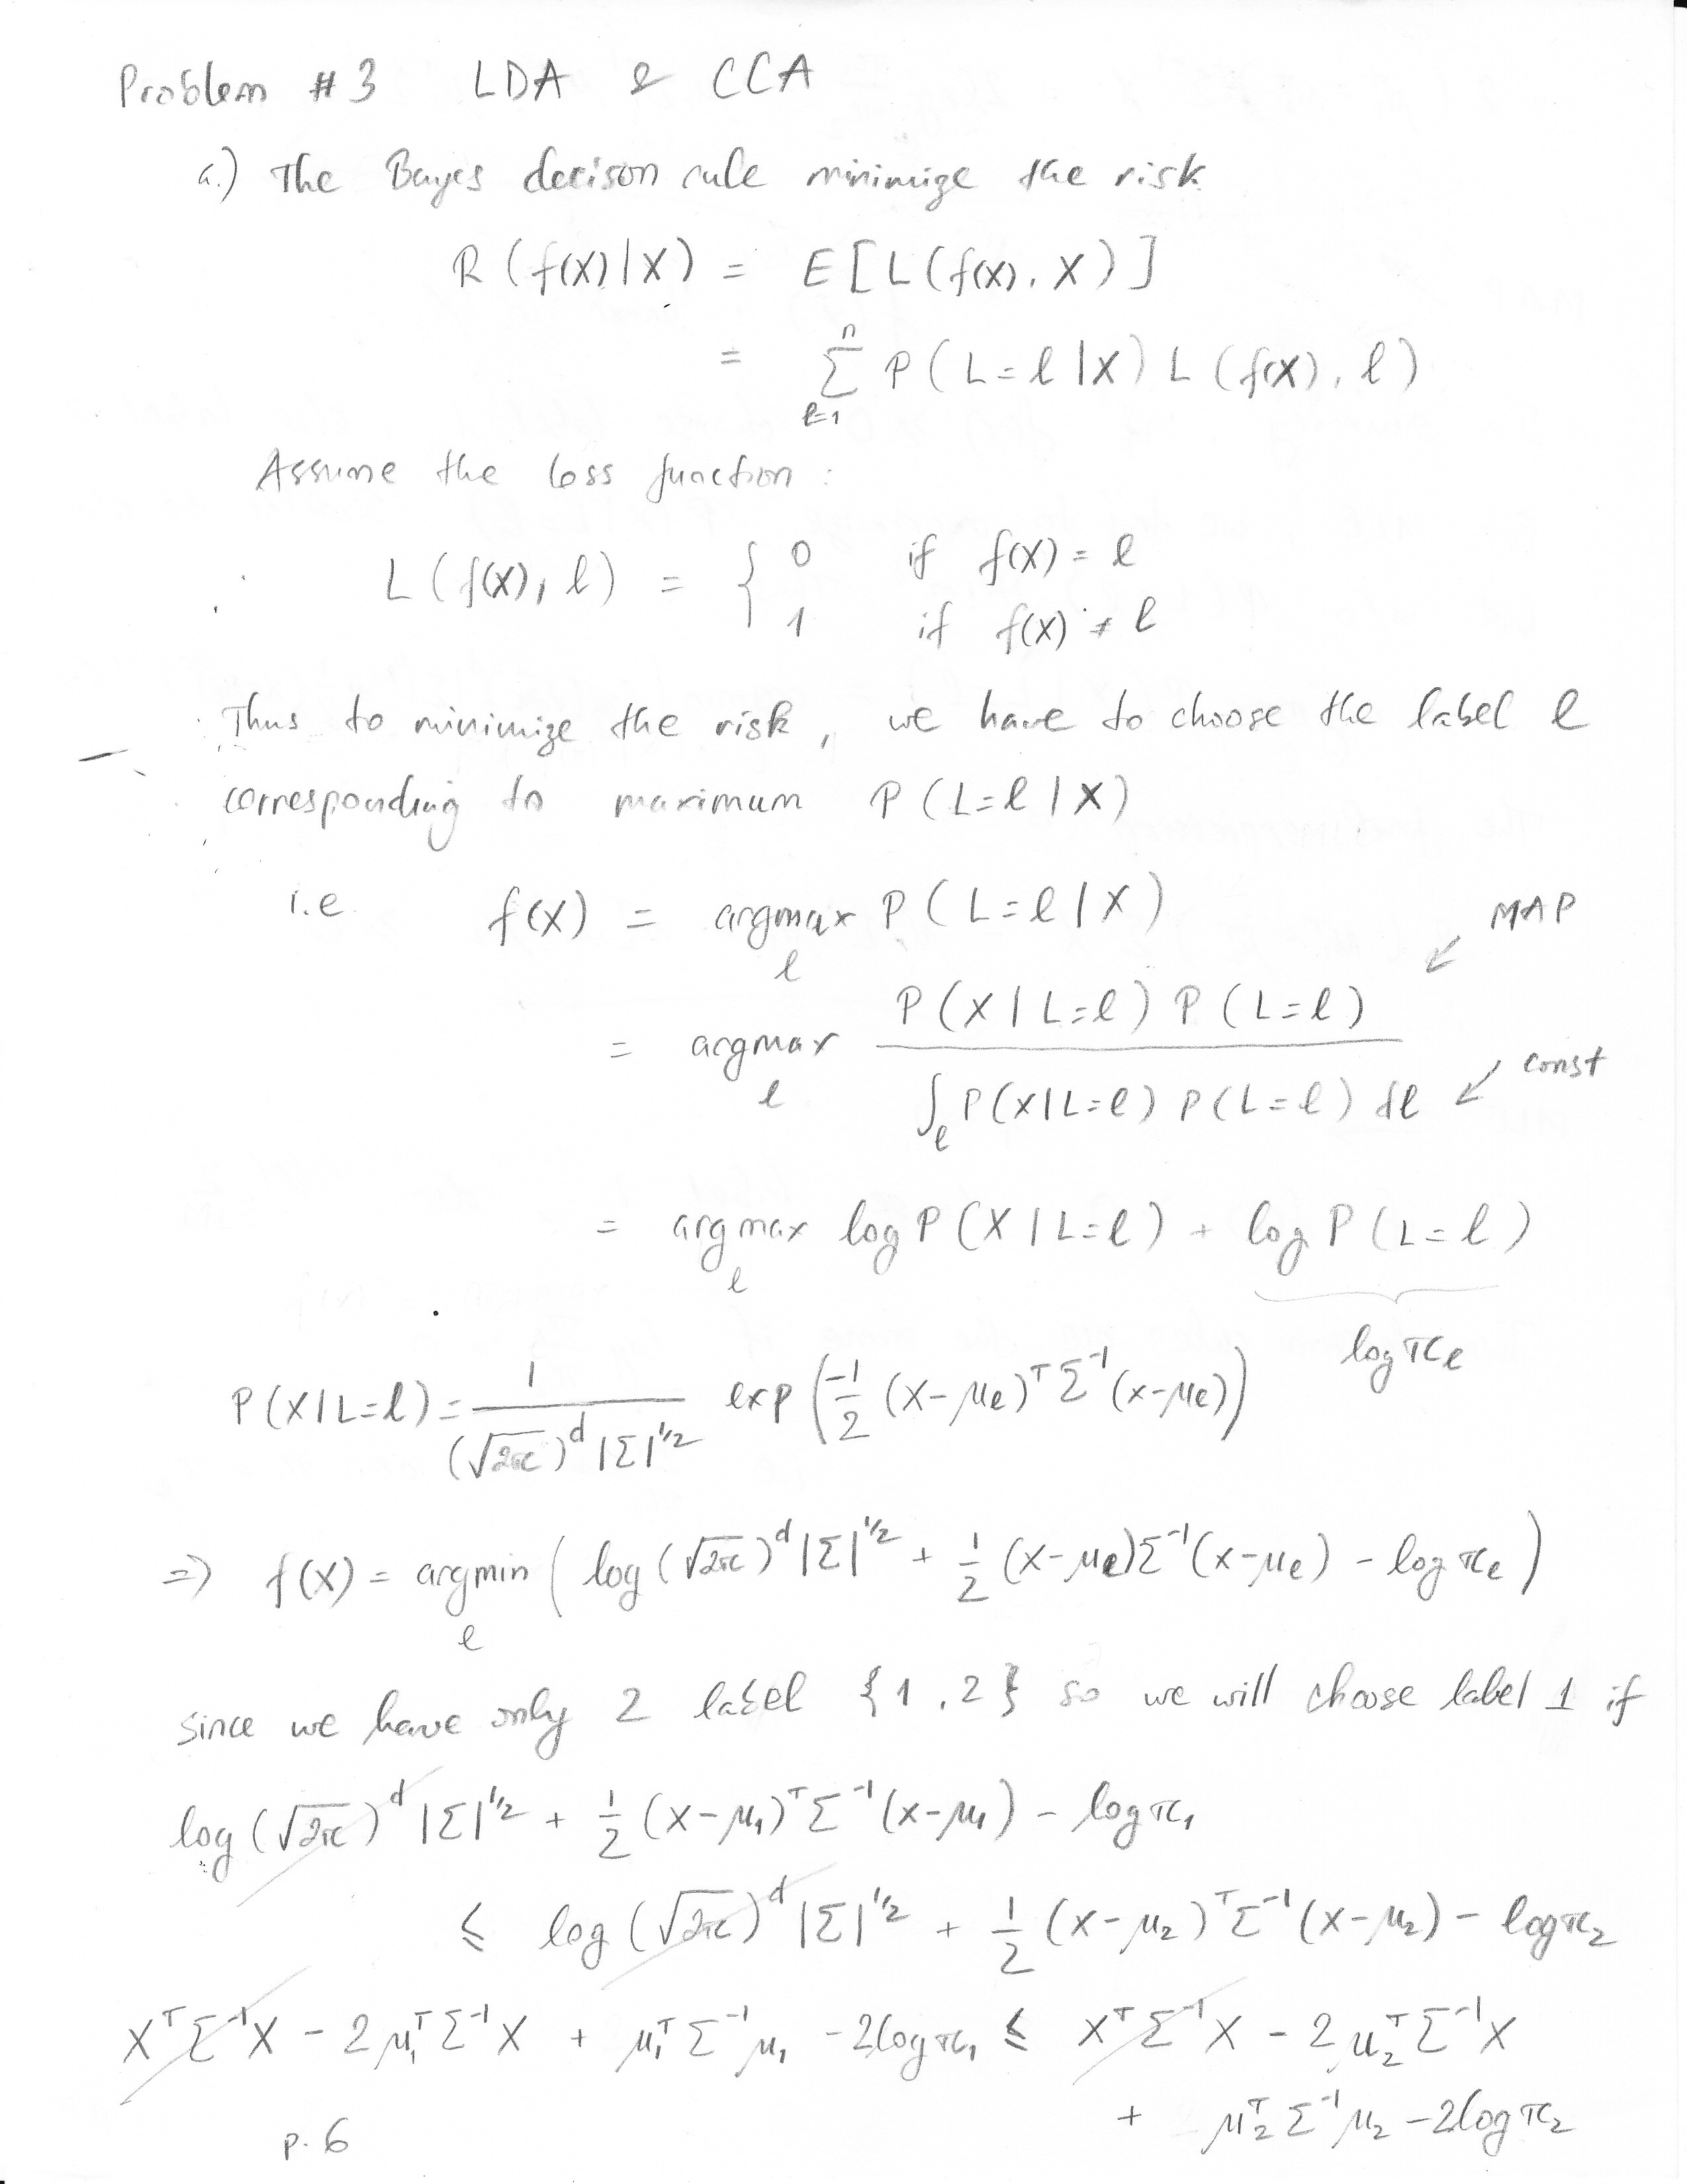 Problem #3 LDA & CCA
a.) The Bayes decison rule minimize the risk
R (f(X)|X) = E[L(f(X), X)]
= Σ_{l=1}^{n} P(L=l|X) L(f(X), l)
Assume the loss function:
L(f(X), l) = { 0 if f(X) = l
1 if f(X) ≠ l
Thus to minimize the risk, we have to choose the label l
corresponding to maximum P(L=l|X)
i.e f(X) = argmax_l P(L=l|X)
MAP
= argmax_l P(X|L=l) P(L=l) / ∫_l P(X|L=l) P(L=l) dl ↙ const
= argmax_l log P(X|L=l) + log P(L=l)
log π_l
P(X|L=l) = 1 / ((√2π)^d |Σ|^{1/2}) exp(-1/2 (X-μ_l)^T Σ^{-1} (x-μ_l))
=> f(X) = argmin_l ( log (√2π)^d |Σ|^{1/2} + 1/2 (x-μ_l)Σ^{-1}(x-μ_l) - log π_l )
since we have only 2 label {1, 2} so we will choose label 1 if
log (√2π)^d |Σ|^{1/2} + 1/2 (x-μ_1)^T Σ^{-1} (x-μ_1) - log π_1
≤ log (√2π)^d |Σ|^{1/2} + 1/2 (x-μ_2)^T Σ^{-1} (x-μ_2) - log π_2
X^T Σ^{-1} X - 2 μ_1^T Σ^{-1} X + μ_1^T Σ^{-1} μ_1 - 2 log π_1 ≤ X^T Σ^{-1} X - 2 μ_2^T Σ^{-1} X
+ μ_2^T Σ^{-1} μ_2 - 2 log π_2
p. 6